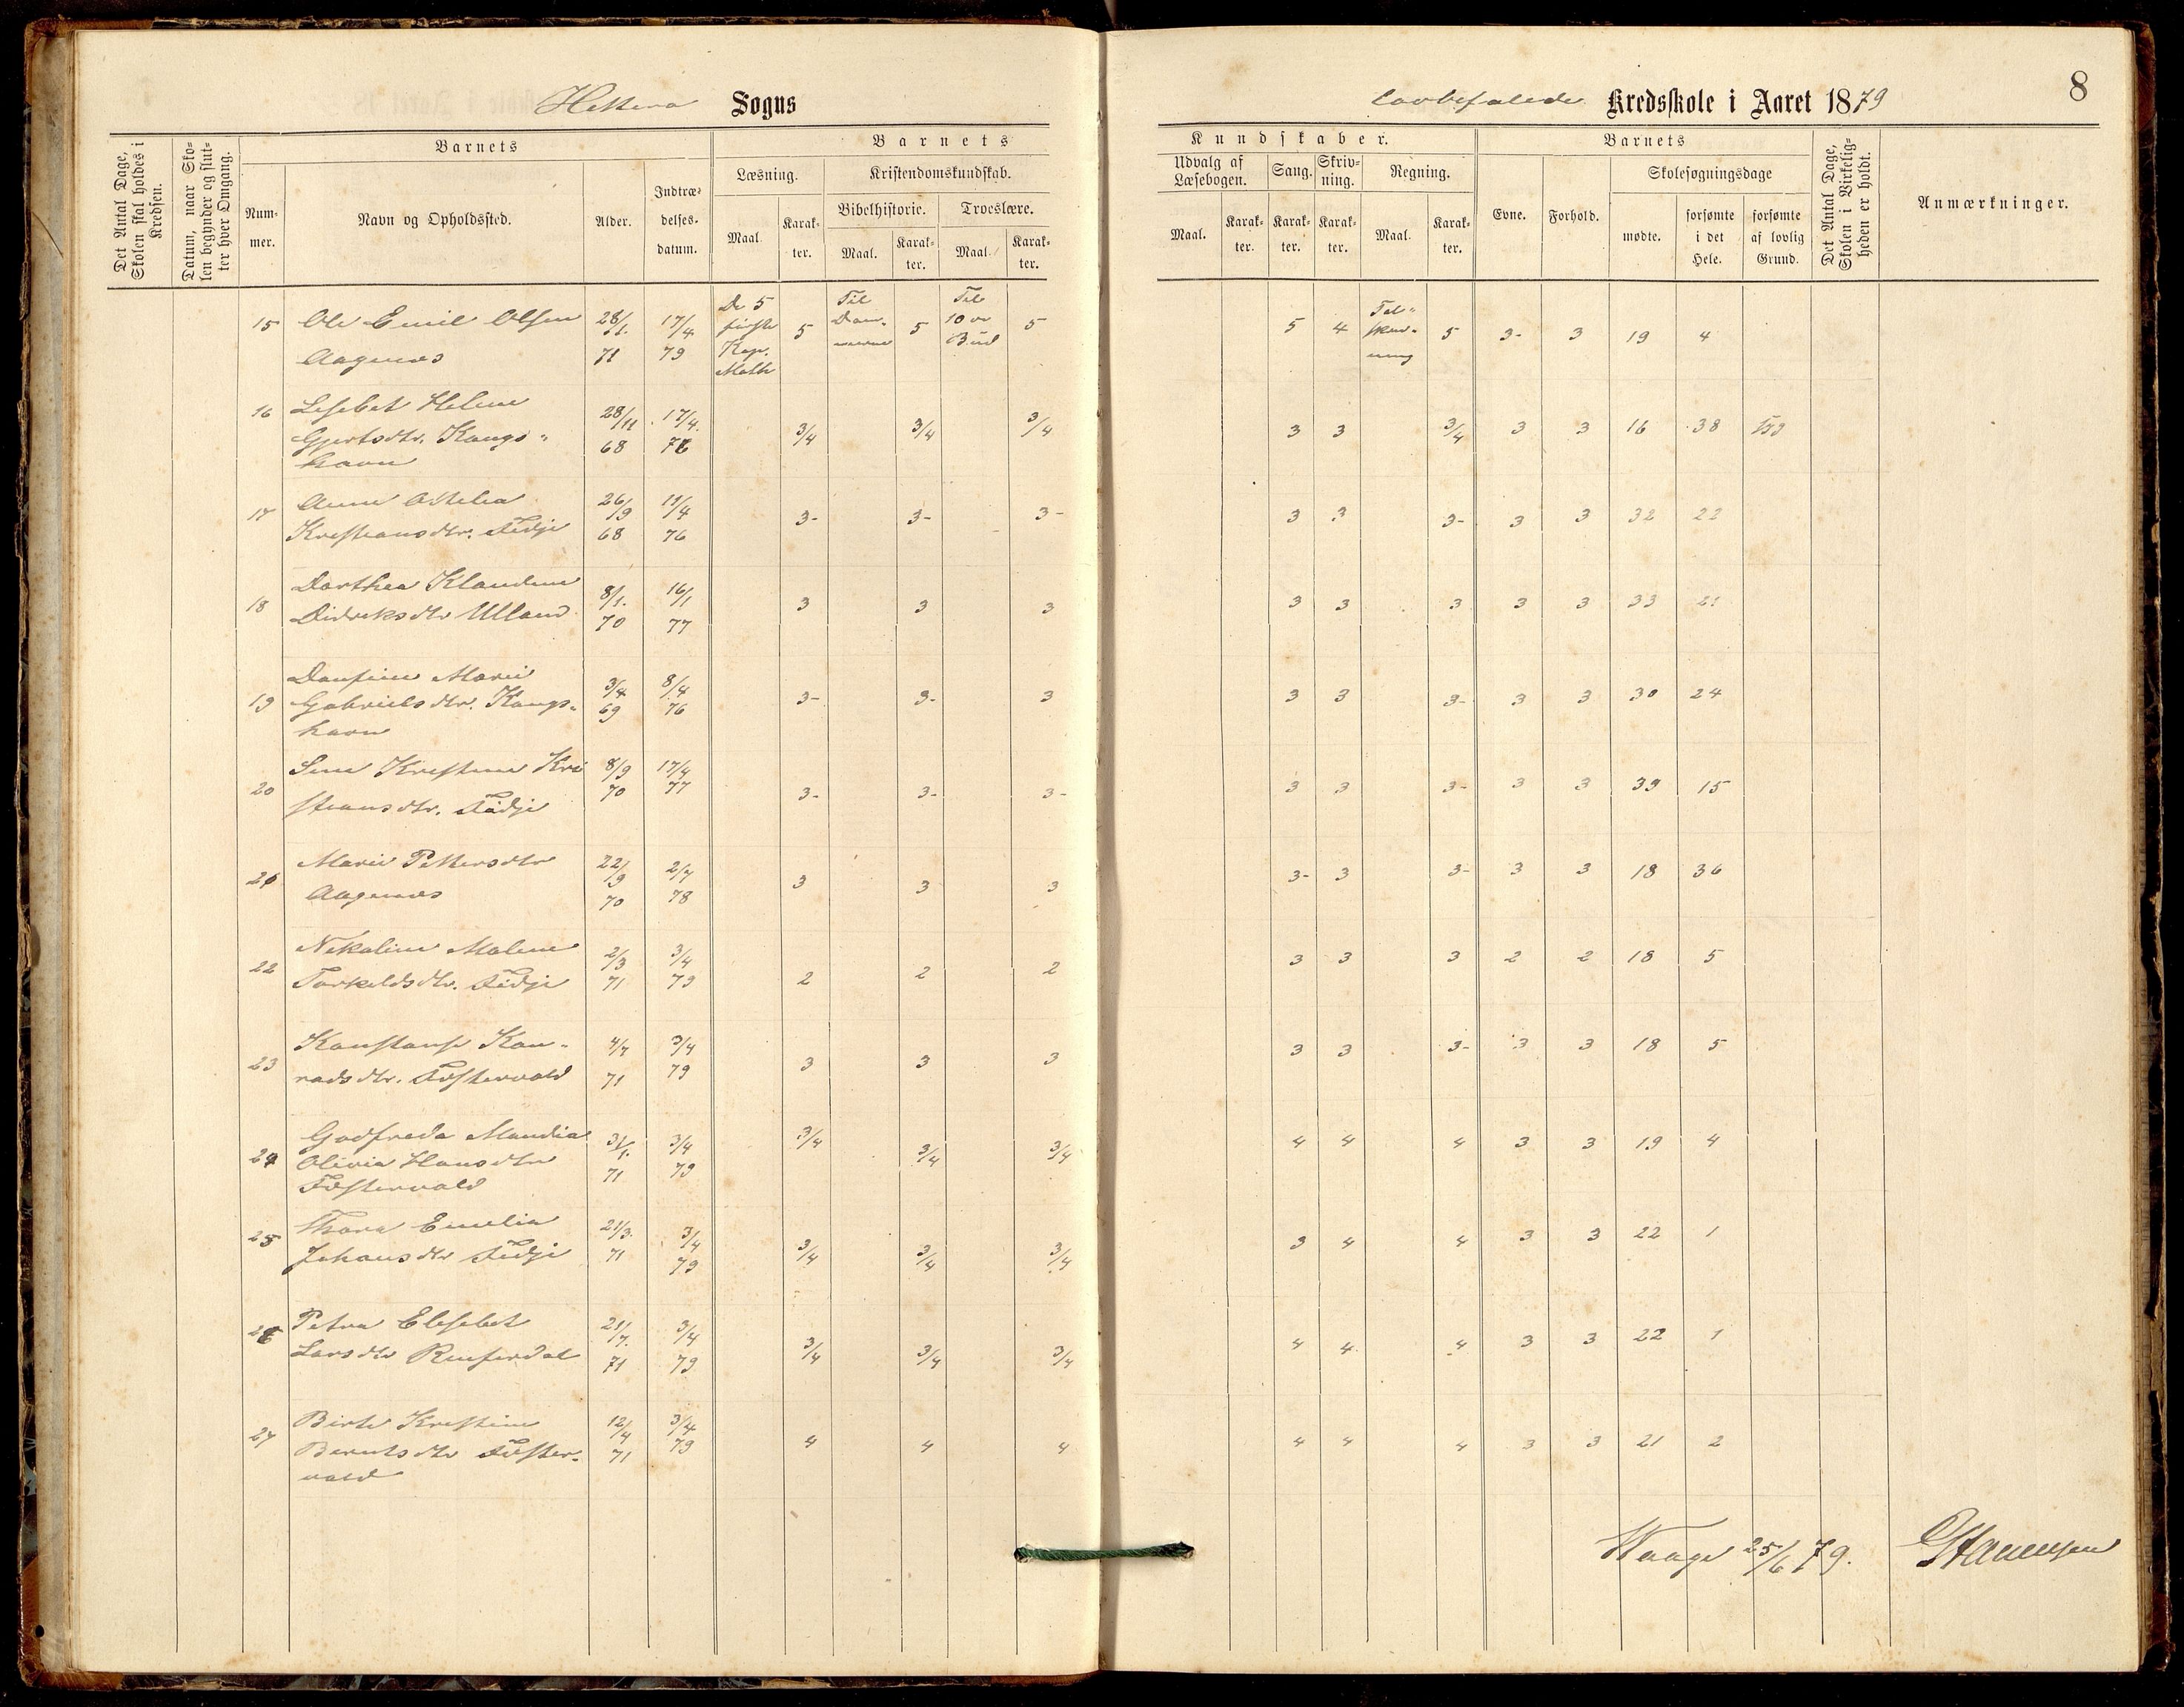 Sogns
lovbefalede Kredsskole i Aaret 1879
8
Det Antal Dage, Skolen skal holdes i Kredsen.
Datum, naar Skolen begynder og slutter hver Omgang.
Barnets
Nummer.
Navn og Opholdssted.
Alder.
Indtrædelses-datum.
Barnets
Læsning.
Maal.
Karakter.
Kristendomskundskab.
Bibelhistorie.
Maal.
Karakter.
Troeslære.
Maal.
Karakter.
Kundskaber.
Udvalg af Læsebogen.
Maal.
Karakter.
Sang.
Karakter.
Skrivning.
Karakter.
Regning.
Maal.
Karakter.
Barnets
Evne.
Forhold.
Skolesøgningsdage
mødte.
forsømte i det Hele.
forsømte af lovlig Grund.
Det Antal Dage, Skolen i Virkeligheden er holdt.
Anmærkninger.
15 Ole Emil Olsen Aagenæs 28/1. 71 17/4 79 De 5 første Kap. Math 5 Til 5 Til 10de Bud 5 5 4 5 3- 3 19 4
16 Lisebet Helene Gjertsdtr. Kongshavn 28/11 68 17/4. 3/4 3/4 3/4 3 3 3/4 3 3 16 38
17 Kristiansdtr. Tidje 26/9 68 11/4 76 3- 3- 3- 3 3 3- 3 3 32 22
18 Dorthea Klaudine Didreksdtr Ulland 8/1. 70 16/1 77 3 3 3 3 3 3 3 3 33 21
19 Marie Gabrielsdtr. Kongshavn 3/4 69 8/4 76 3- 3- 3 3 3 3- 3 3 30 24
20 Sine Kristine Kristiansdtr. Tidje 8/9 70 17/4 77 3- 3- 3- 3 3 3- 3 3 39 15
21 Marie Pettersdtr Aagenæs 22/9 70 2/7 78 3 3 3 3- 3 3- 3 3 18 36
22 Nikoline Malene Torkeldsdtr. Tidje 2/3 71 3/4 79 2 2 2 3 3 3 2 2 18 5
23 Konstanse Konradsdtr. Fostervold 4/7 71 3/4 79 3 3 3 3 3 3- 3 3 18 5
24 Godfreda Maudia Olivia Hansdtr Fostervold 31/1. 71 3/4 79 3/4 3/4 3/4 4 4 4 3 3 19 4
25 Thora Emelia Johansdtr Tidje 21/3. 71 3/4 79 3/4 3/4 3/4 3 4 4 3 3 22 1
26 Petra Elisebet Larsdtr 21/7. 71 3/4 79 3/4 3/4 3/4 4 4 4 3 3 22 1
27 Birte Kristine Berntsdtr Fostervold 12/4 71 3/4 79 4 4 4 4 4 4 3 3 21 2
Waage 25/6 79.